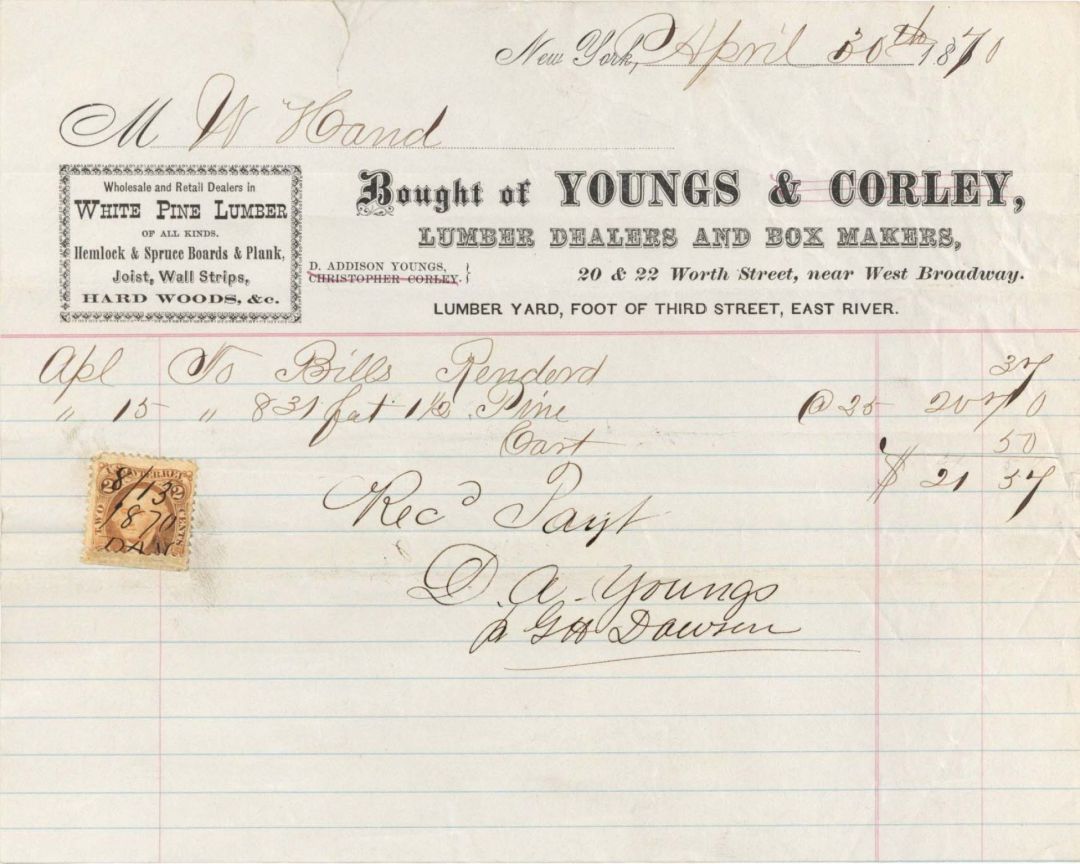 New York, April 30th 1870
M W Hand
Wholesale and Retail Dealers in
WHITE PINE LUMBER
OF ALL KINDS.
Hemlock & Spruce Boards & Plank,
Joist, Wall Strips,
HARD WOODS, &c.
Bought of YOUNGS & CORLEY,
LUMBER DEALERS AND BOX MAKERS,
D. ADDISON YOUNGS,
CHRISTOPHER CORLEY.
20 & 22 Worth Street, near West Broadway.
LUMBER YARD, FOOT OF THIRD STREET, EAST RIVER.
Apl To Bills Renderd 37
" 15 " 831 1 1/2 Pine @ 25 20 70
Cart 50
$ 21 57
Recd Payt
D. A. Youngs
p GH Dawson
INTER. REV.
2 2
TWO CENTS
8/13
1870
DAY